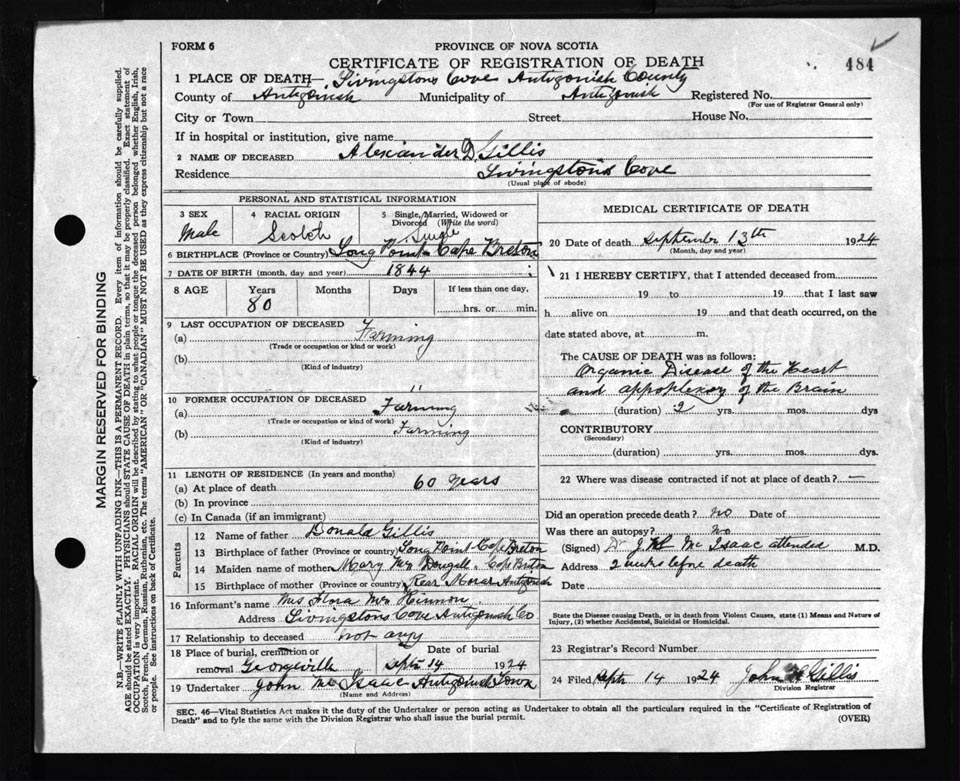 FORM 6
PROVINCE OF NOVA SCOTIA
CERTIFICATE OF REGISTRATION OF DEATH
484
1 PLACE OF DEATH—Livingstons Cove Antigonish County
County of Antigonish Municipality of Antigonish Registered No.
(For use of Registrar General only)
City or Town Street House No.
If in hospital or institution, give name
2 NAME OF DECEASED Alexander D Gillis
Residence Livingston's Cove
(Usual place of abode)
PERSONAL AND STATISTICAL INFORMATION
3 SEX Male
4 RACIAL ORIGIN Scotch
5 Single, Married, Widowed or Divorced (Write the word) Single
6 BIRTHPLACE (Province or Country) Long Point Cape Breton
7 DATE OF BIRTH (month, day and year) 1844
8 AGE Years 80 Months Days If less than one day, hrs. or min.
9 LAST OCCUPATION OF DECEASED
(a) Farming
(Trade or occupation or kind or work)
(b)
(Kind of industry)
"
10 FORMER OCCUPATION OF DECEASED
(a) Farming
(Trade or occupation or kind of work)
(b) Farming
(Kind of industry)
11 LENGTH OF RESIDENCE (In years and months)
(a) At place of death 60 years
(b) In province
(c) In Canada (if an immigrant)
Parents
12 Name of father Donald Gillis
13 Birthplace of father (Province or country) Long Point Cape Breton
14 Maiden name of mother Mary Mc Dougall Cape Breton
15 Birthplace of mother (Province or country) Rear Morar Antigonish
16 Informant's name Mrs Flora Mc Kinnon
Address Livingstons Cove Antigonish Co
17 Relationship to deceased not any
18 Place of burial, cremation or removal Georgeville
Date of burial Sept 14 1924
19 Undertaker John Mc Isaac Antigonish Town
(Name and Address)
MEDICAL CERTIFICATE OF DEATH
20 Date of death September 13th 1924
(Month, day and year)
21 I HEREBY CERTIFY, that I attended deceased from
19 to 19 that I last saw
h alive on 19 and that death occurred, on the
date stated above, at m.
The CAUSE OF DEATH was as follows:
Organic Disease of the Heart
and appoplexoy of the Brain
(duration) 2 yrs. mos. dys
CONTRIBUTORY
(Secondary)
(duration) yrs. mos. dys.
22 Where was disease contracted if not at place of death? —
Did an operation precede death? no Date of
Was there an autopsy? No
(Signed) Mc Isaac attended M.D.
Address 2 weeks before death
Date
State the Disease causing Death, or in death from Violent Causes, state (1) Means and Nature of
Injury, (2) whether Accidental, Suicidal or Homicidal.
23 Registrar's Record Number
24 Filed Sept 14 1924 John Gillis
Division Registrar
SEC. 46—Vital Statistics Act makes it the duty of the Undertaker or person acting as Undertaker to obtain all the particulars required in the "Certificate of Registration of
Death" and to fyle the same with the Division Registrar who shall issue the burial permit.
(OVER)
MARGIN RESERVED FOR BINDING
N.B.—WRITE PLAINLY WITH UNFADING INK—THIS IS A PERMANENT RECORD. Every item of information should be carefully supplied.
AGE should be stated EXACTLY. PHYSICIANS should STATE CAUSE OF DEATH in plain terms, so that it may be properly classified. Exact statement of
OCCUPATION is very important. RACIAL ORIGIN will be described by stating to what people or tongue the deceased person belonged whether English, Irish,
Scotch, French, German, Russian, Ruthenian, etc. The terms "AMERICAN" or "CANADIAN" MUST NOT BE USED as they express citizenship but not a race
or people. See instructions on back of Certificate.